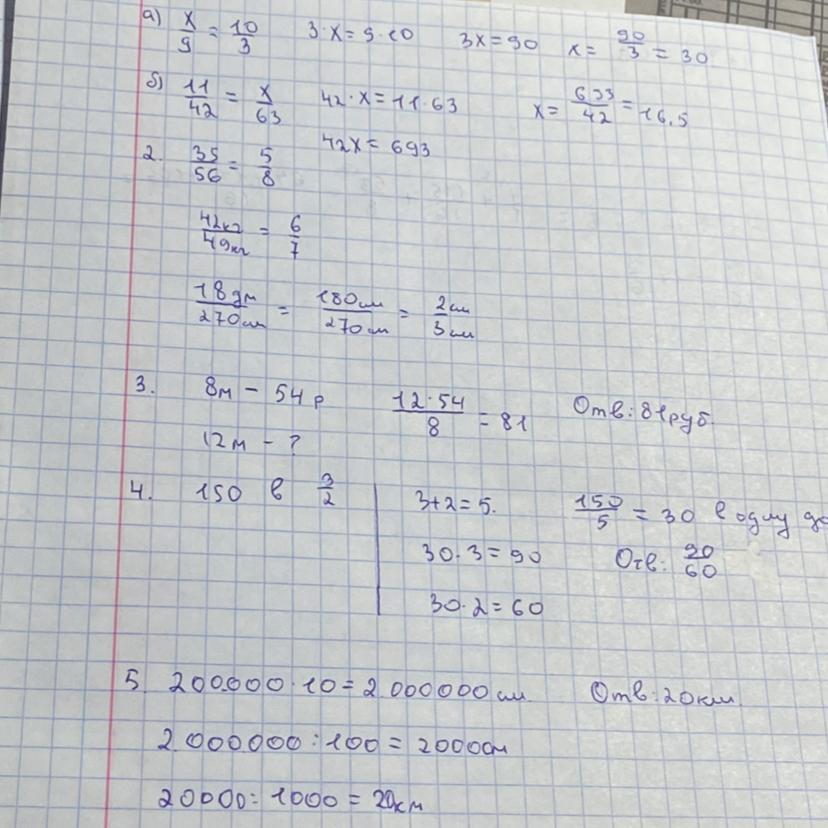 а) x/9 = 10/3 3·x=9·10 3x=90 x= 90/3 = 30
б) 11/42 = x/63 42·x=11·63 x= 693/42 = 16,5
42x=693
2. 35/56 = 5/8
42кг/49кг = 6/7
18дм/270см = 180см/270см = 2см/3см
3. 8м – 54р 12·54/8 = 81 Отв: 81руб.
12м – ?
4. 150 в 3/2 3+2=5. 150/5 = 30 в одну
30·3=90 Отв: 90/60
30·2=60
5. 200.000·10=2.000000см Отв: 20км.
2.000000:100=20000м
20000:1000=20км